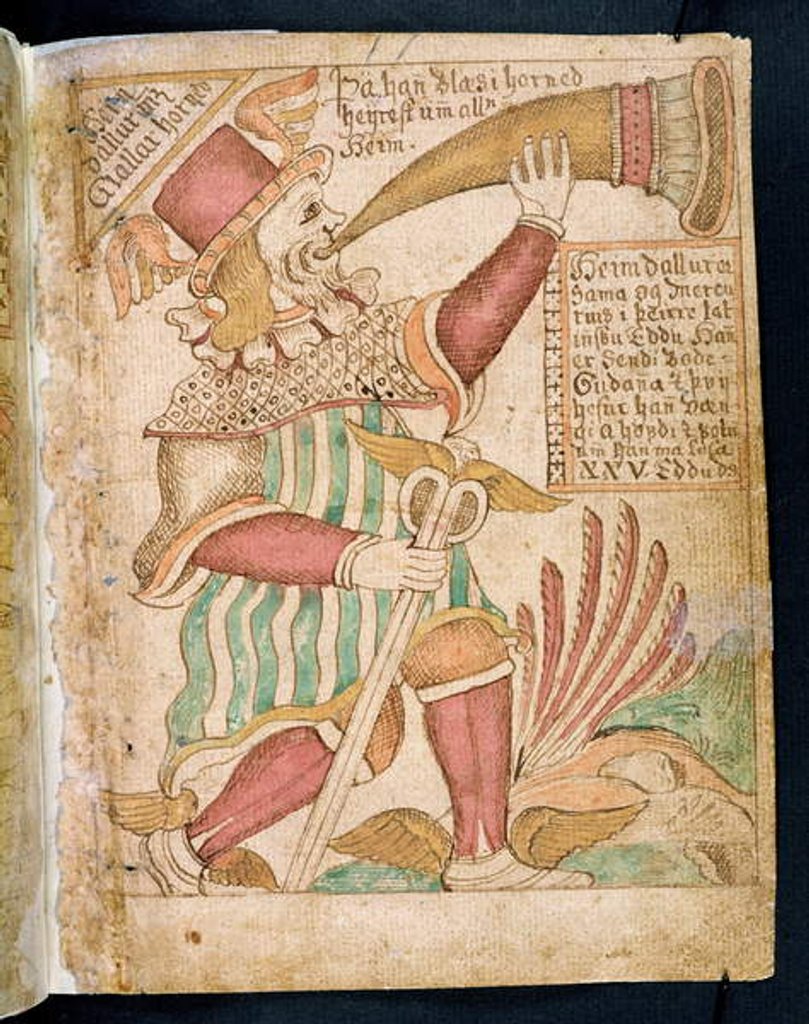 Heim
dallur m;
Giallar horned
Þä han̄ blæsi horned
heÿrest um̄ alln
Heim.
Heimdallur er
sama og Mercu
rius i þeirre lat
insku Eddu Han̄
er Sendi Bode-
Gudana & þvy
hefur han̄ væn
gi a höfdi & fotu
um þan ma lesa
XXV. Eddu ds